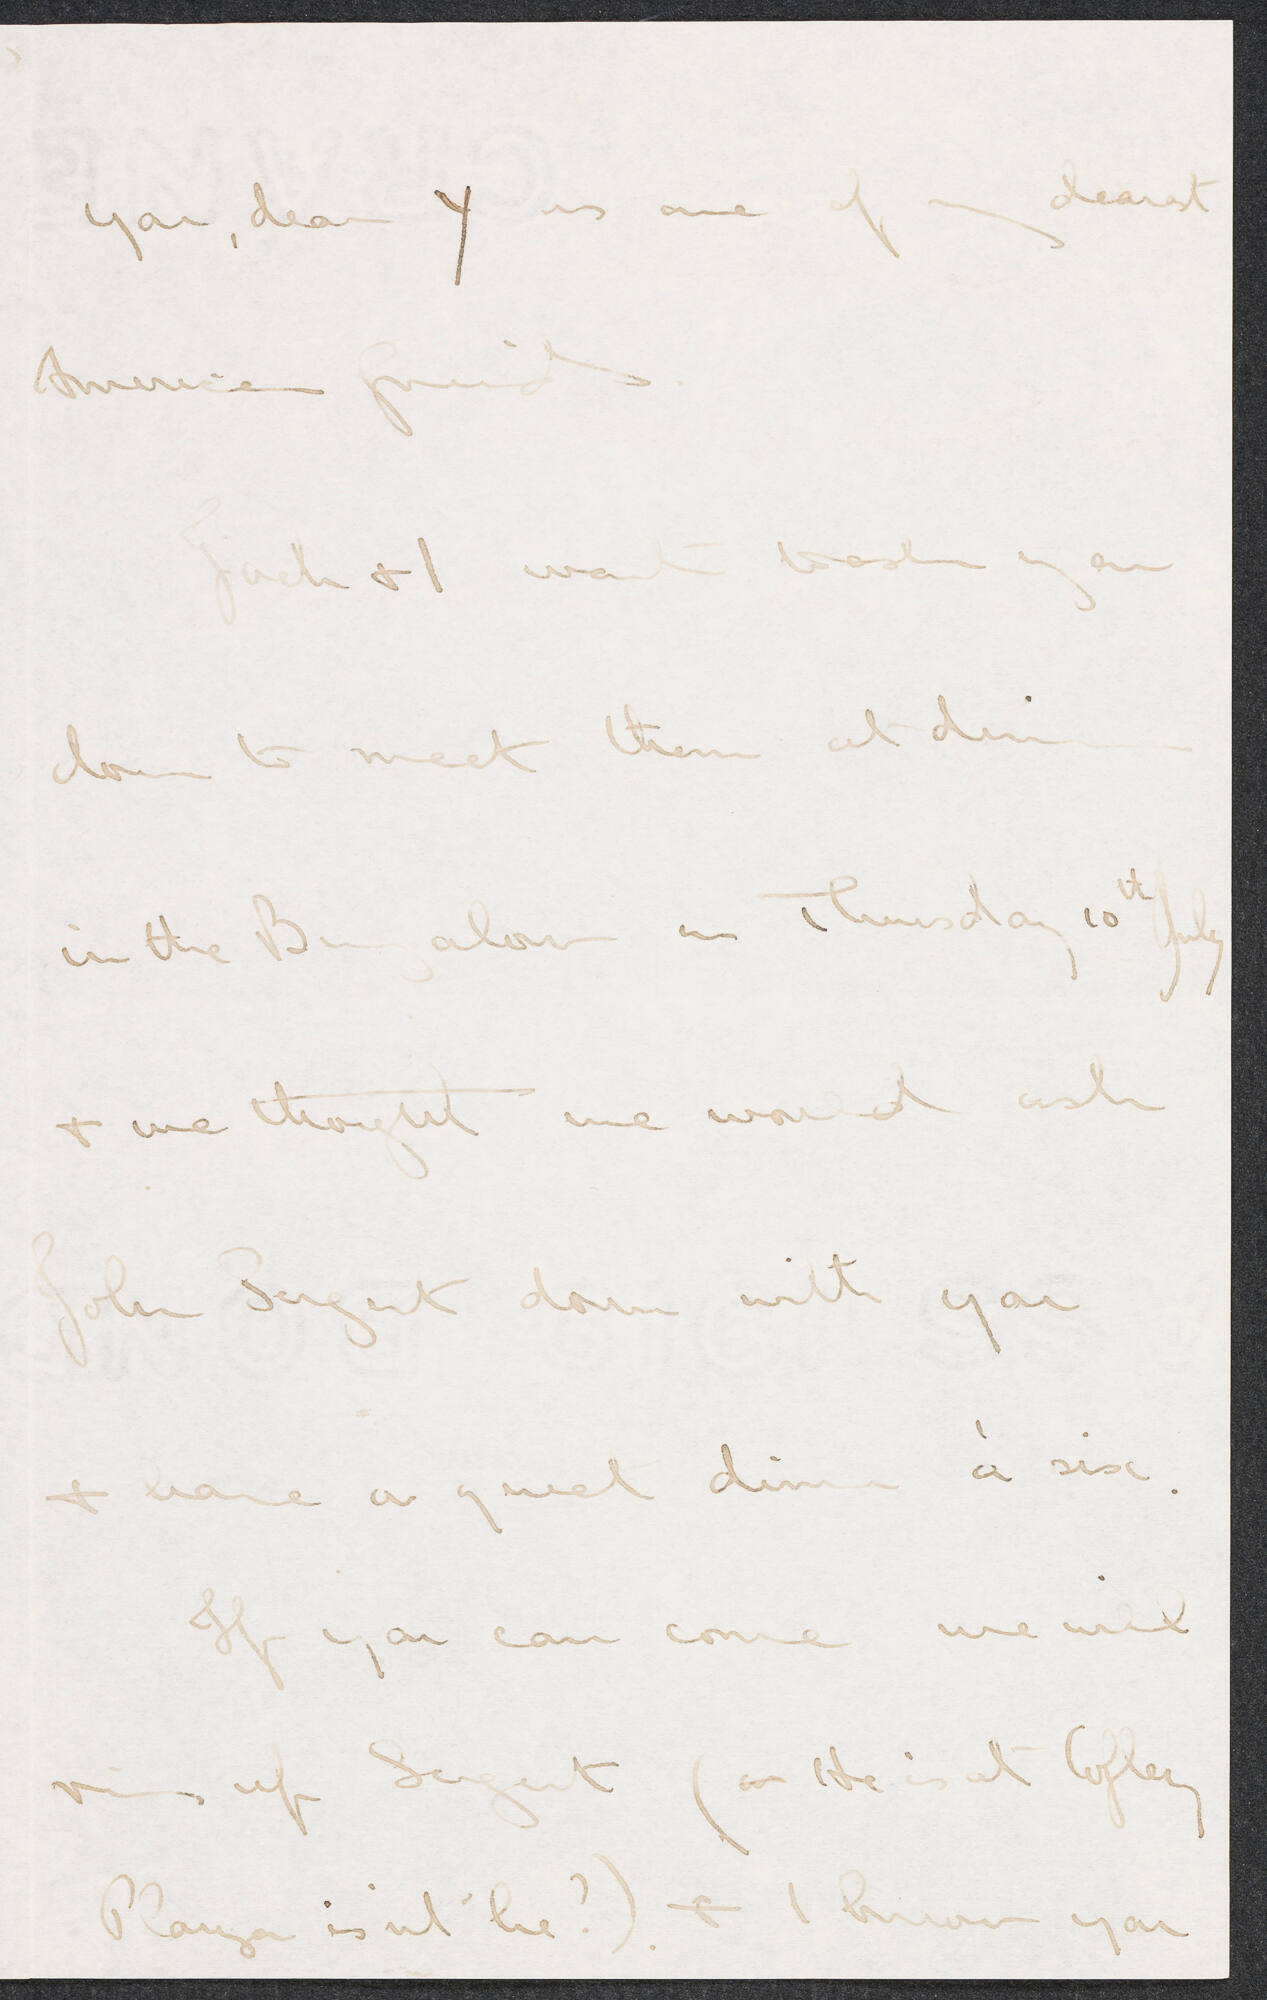 you, dear Y as one of my dearest
American friends.
Jack & I want to ask you
down to meet them at dinner
in the Bungalow on Thursday 10th July
& we thought we would ask
John Sargent down with you
& have a quiet dinner à six.
If you can come we will
ring up Sargent ( He is at Copley
Plaza isn't he?). & I know you